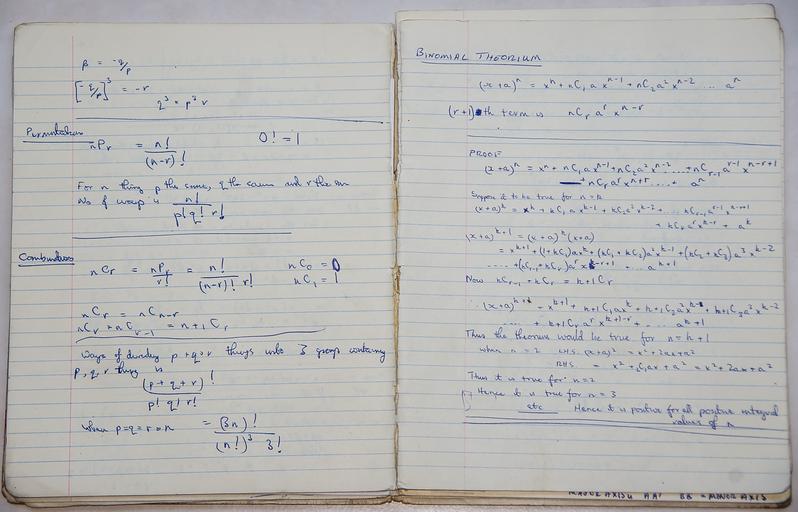 β = -q/p
[-q/p]³ = -r
q³ = p³ r
Purmutation
nPr = n!/(n-r)!   0! = 1
For n thing p the same, q the same and r the
No of ways is n!/p! q! r!
Combinations
nCr = nPr/r! = n!/(n-r)! r!   nC₀ = 0
nC₁ = 1
nCr = nCn-r
nCr + nCr-1 = n+1Cr
Ways of dividing p+q+r things into 3 groups containing
p, q, r things is
(p+q+r)!/p! q! r!
When p=q=r=n = (3n)!/(n!)³ 3!
BINOMIAL THEORIUM
(x+a)ⁿ = xⁿ + nC₁ a xⁿ⁻¹ + nC₂ a² xⁿ⁻² ... aⁿ
(r+1)th term is nCr aʳ xⁿ⁻ʳ
PROOF
(x+a)ⁿ = xⁿ + nC₁ a xⁿ⁻¹ + nC₂ a² xⁿ⁻² ..... + nCr-1 aʳ⁻¹ xⁿ⁻ʳ⁺¹
+ nCr aʳ xⁿ⁺ʳ .... + aⁿ
Suppose it to be true for n = k
(x+a)ᵏ = xᵏ + kC₁ a xᵏ⁻¹ + kC₂ a² xᵏ⁻² ... kCr-1 aʳ⁻¹ xⁿ⁻ʳ⁺¹
+ kCr aʳ xᵏ⁻ʳ + aᵏ
(x+a)ᵏ⁺¹ = (x+a)ᵏ (x+a)
= xᵏ⁺¹ + (1+kC₁) a xᵏ + (kC₁ + kC₂) a² xᵏ⁻¹ + (kC₂ + kC₃) a³ xᵏ⁻²
..... + (kCr-1 + kCr) aʳ xᵏ⁻ʳ⁺¹ + ... aᵏ⁺¹
Now kCr-1 + kCr = k+1Cr
∴ (x+a)ᵏ⁺¹ = xᵏ⁺¹ + k+1C₁ a xᵏ + k+1C₂ a² xᵏ⁻¹ + k+1C₃ a³ xᵏ⁻²
..... + k+1Cr aʳ xᵏ⁺¹⁻ʳ + .... aᵏ⁺¹
Thus the theorem would be true for n = k+1
when n = 2 LHS (x+a)² = x² + 2ax + a²
RHS = x² + ₂C₁ax + a² = x² + 2ax + a²
Thus it is true for n = 2
Hence it is true for n = 3
etc Hence it is positive for all positive integral
values of n
MAJOR AXIS AA' BB' = MINOR AXIS